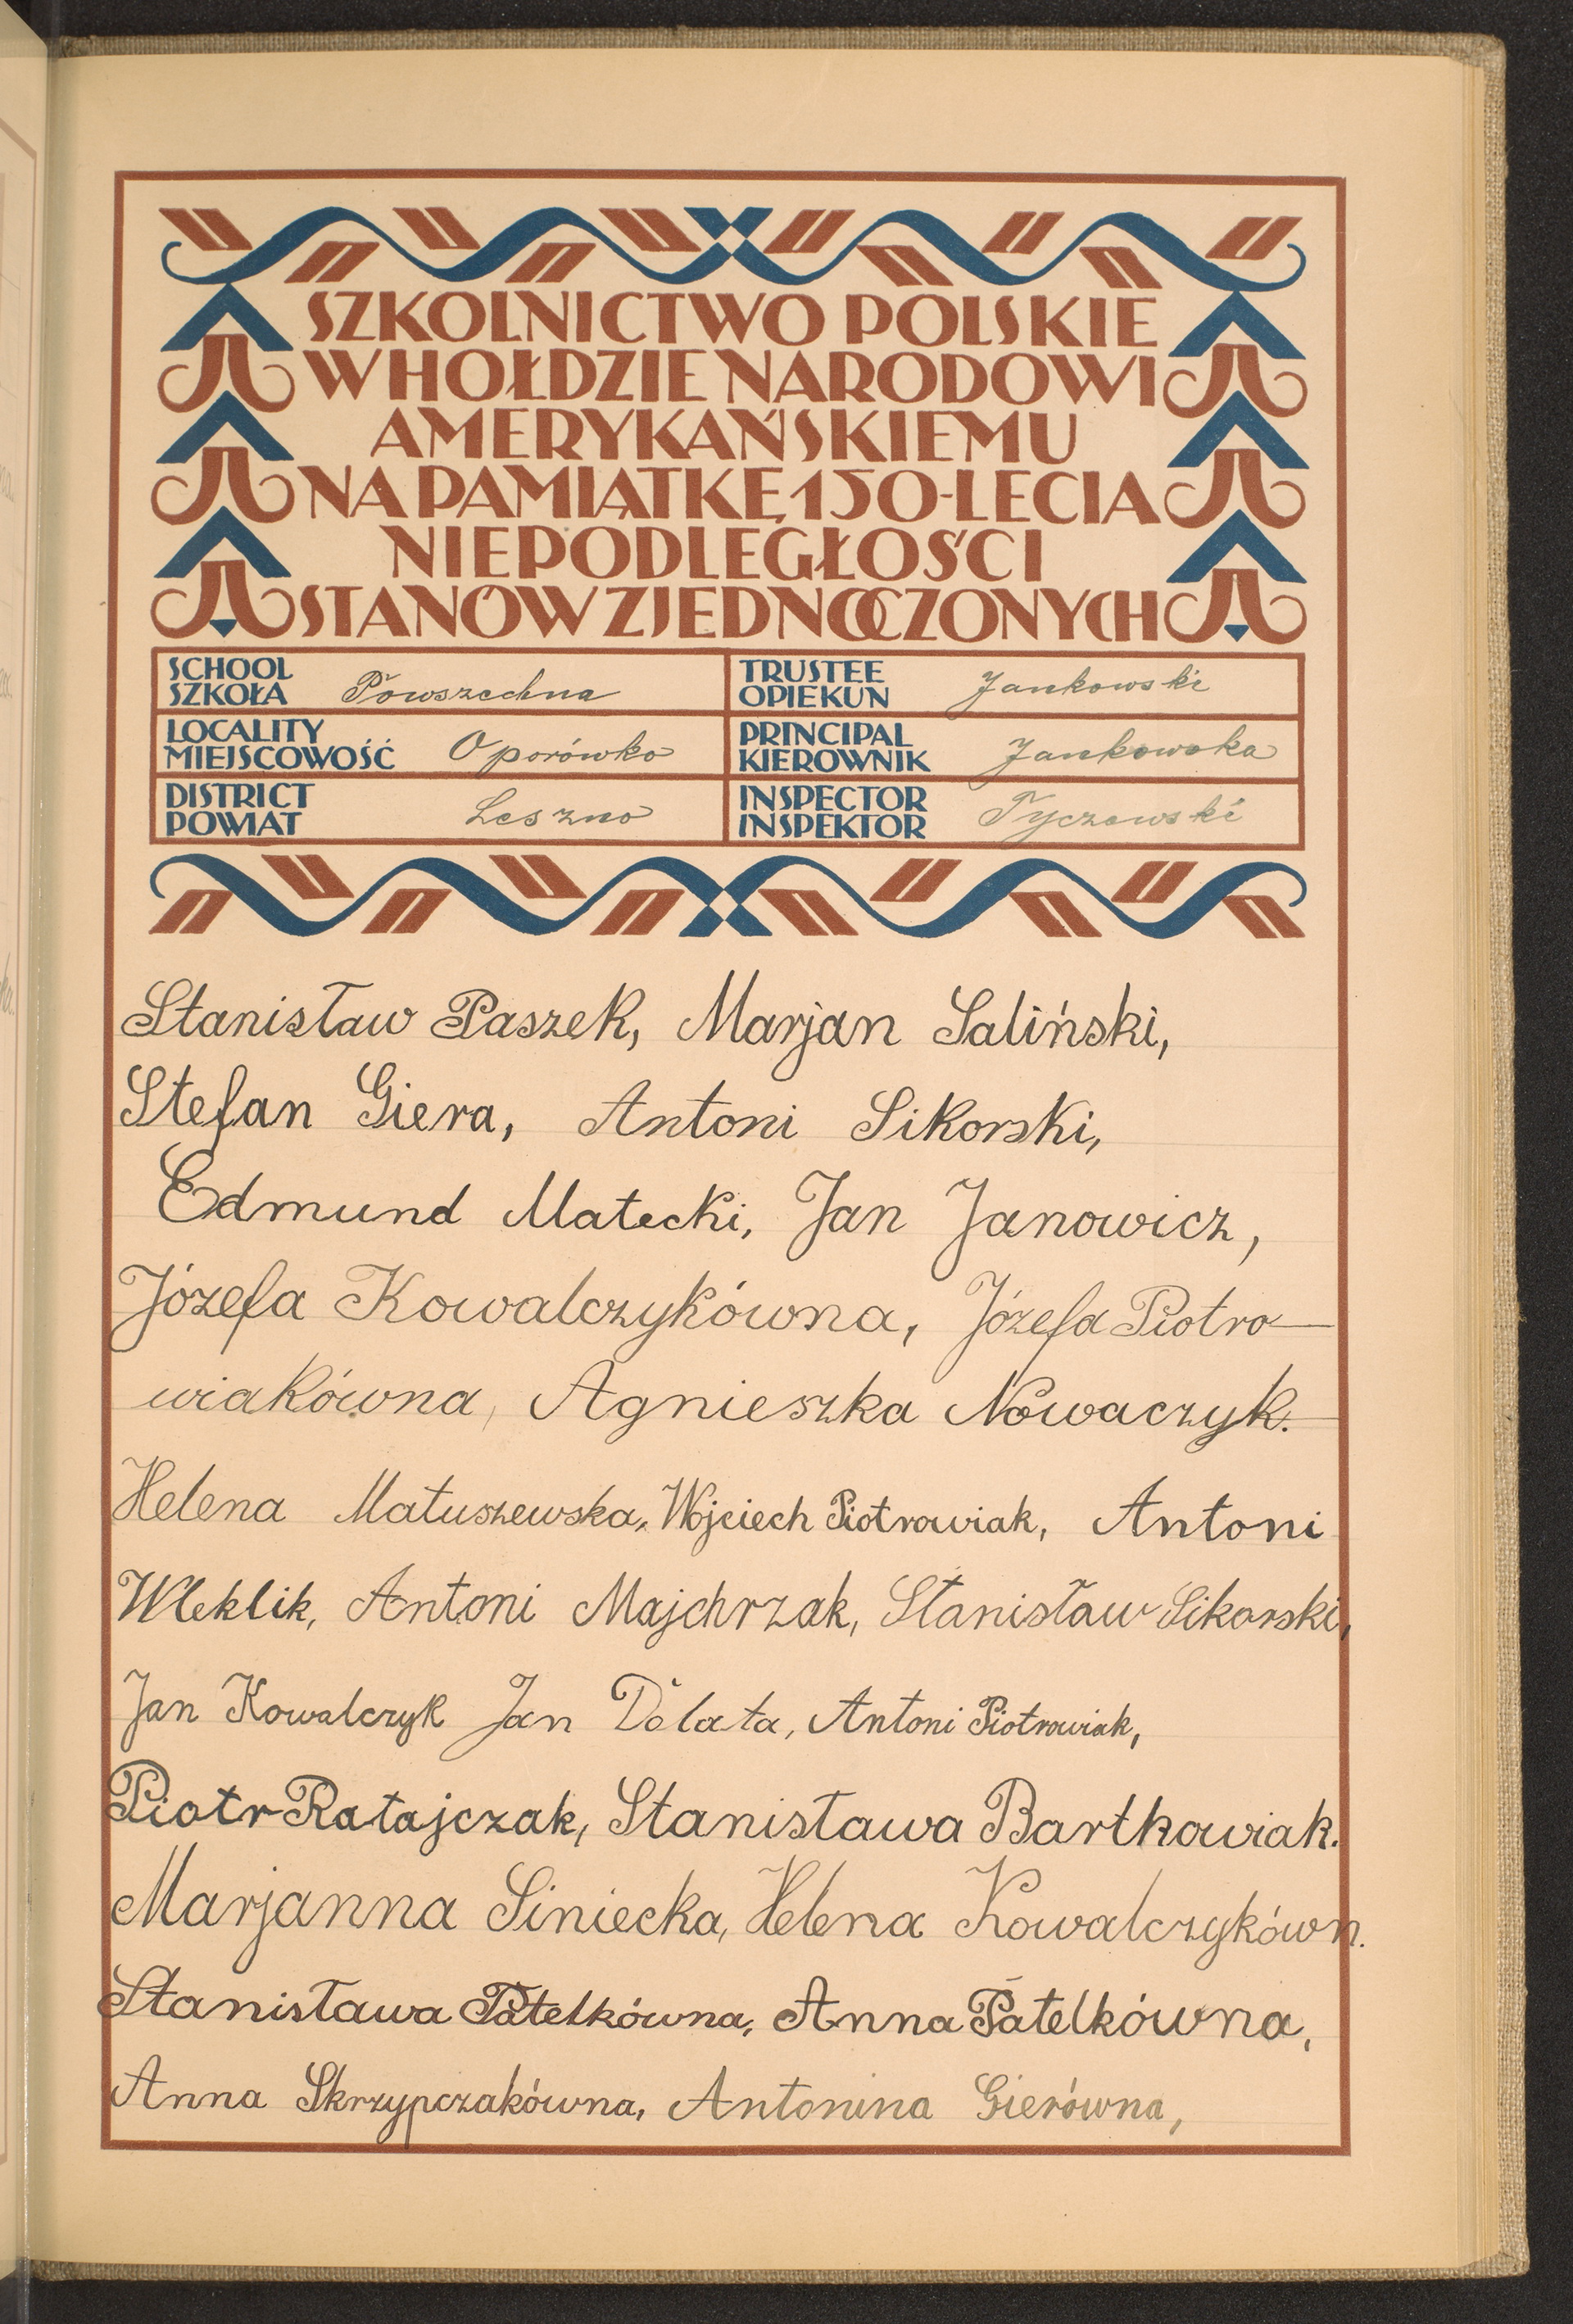 SZKOLNICTWO POLSKIE
W HOŁDZIE NARODOWI
AMERYKAŃSKIEMU
NA PAMIĄTKĘ 150-LECIA
NIEPODLEGŁOŚCI
STANÓW ZJEDNOCZONYCH
SCHOOL
SZKOŁA Powszechna
TRUSTEE
OPIEKUN Jankowski
LOCALITY
MIEJSCOWOŚĆ Oporówko
PRINCIPAL
KIEROWNIK Jankowska
DISTRICT
POWIAT Leszno
INSPECTOR
INSPEKTOR Tyczewski
Stanisław Paszek, Marjan Saliński,
Stefan Giera, Antoni Sikorski,
Edmund Matecki, Jan Janowicz,
Józefa Kowalczykówna, Józefa Piotro-
wiakówna, Agnieszka Nowaczyk.
Helena Matuszewska, Wojciech Piotrowiak, Antoni
Wleklik, Antoni Majchrzak, Stanisław Sikorski,
Jan Kowalczyk Jan Dolata, Antoni Piotrowiak,
Piotr Ratajczak, Stanisława Bartkowiak.
Marjanna Siniecka, Helena Kowalczykówn.
Stanisława Patelkówna, Anna Patelkówna,
Anna Skrzypczakówna, Antonina Gierówna,